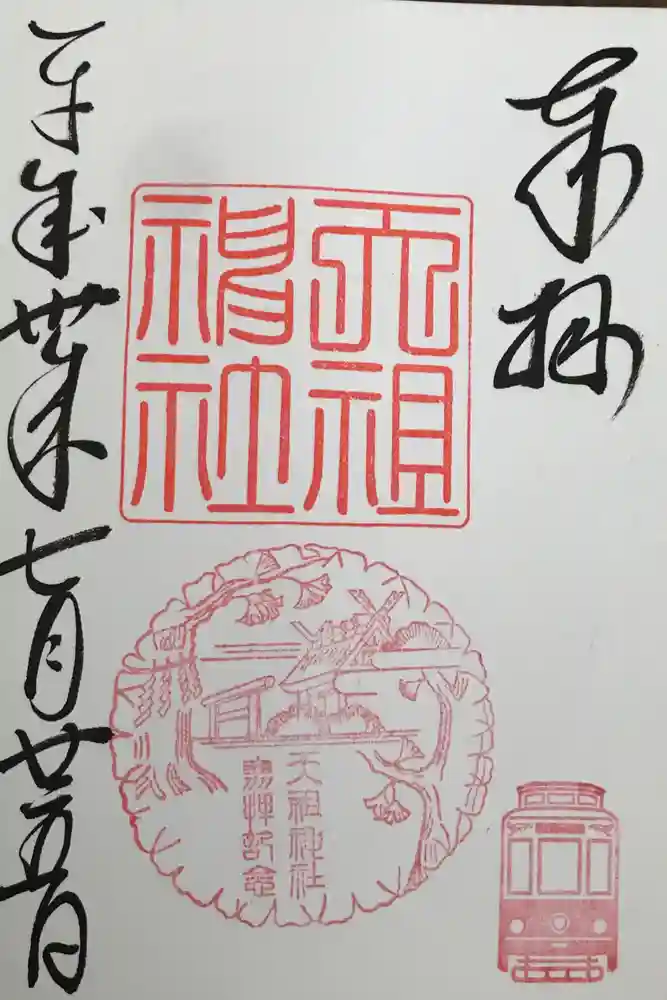 奉拝
天祖
神社
天祖神社
参拝記念
平成丗年七月廿五日